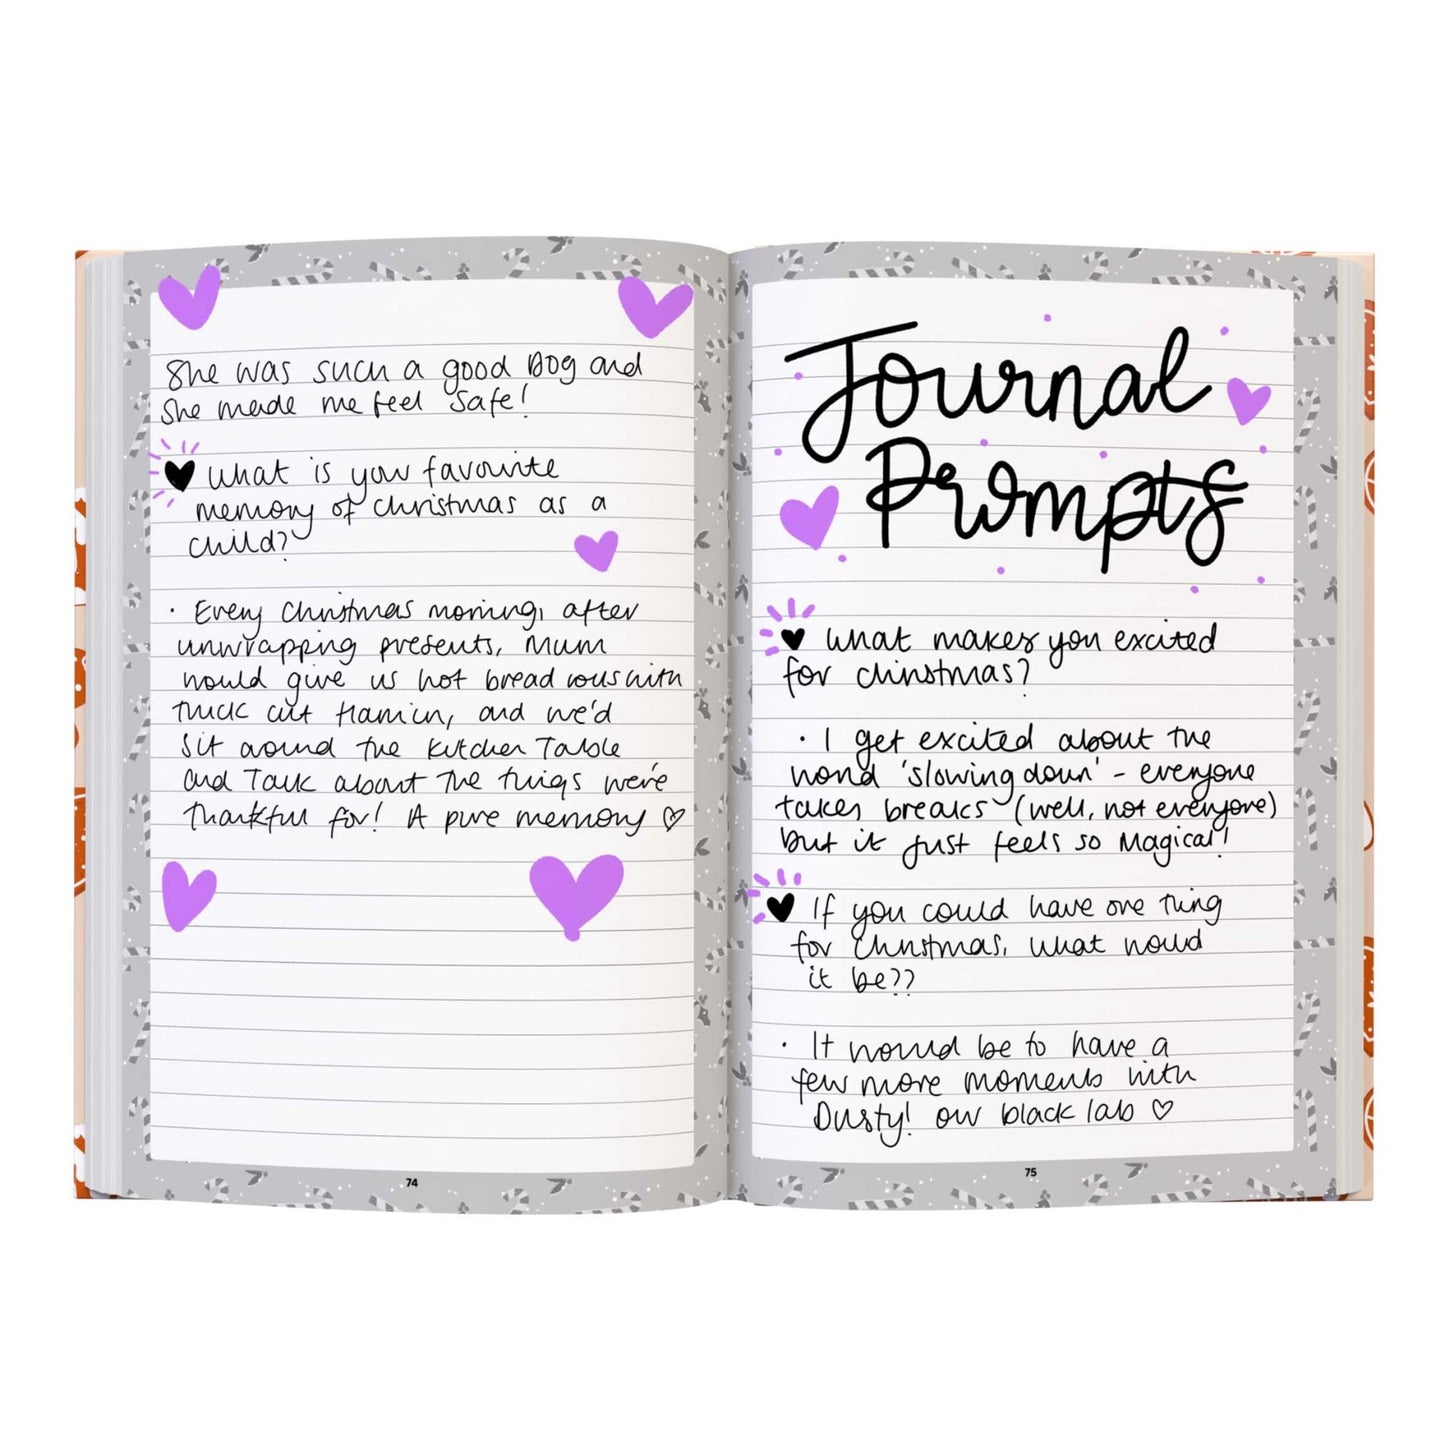 She was such a good Dog and
She made me feel safe!
What is your favourite
memory of Christmas as a
child?
• Every Christmas morning, after
unwrapping presents, Mum
would give us hot bread rolls with
thick cut Ham in, and we'd
sit around the kitchen Table
and Talk about The things we're
Thankful for! A pure memory
74
Journal
Prompts
What makes you excited
for Christmas?
• I get excited about the
world 'slowing down' - everyone
takes breaks (well, not everyone)
but it just feels so Magical!
If you could have one thing
for Christmas, what would
it be??
• It would be to have a
few more moments with
Dusty! our black lab
75